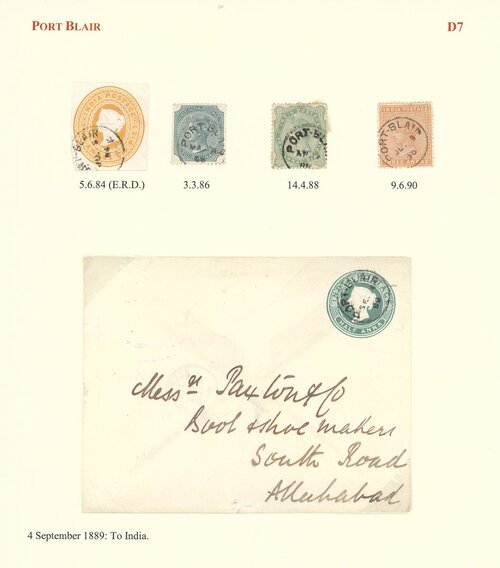 PORT BLAIR D7
INDIA POSTAGE
PORT-BLAIR
PORT-BLAIR
INDIA POSTAGE
PORT-BLAIR
INDIA POSTAGE
PORT-BLAIR
5.6.84 (E.R.D.) 3.3.86 14.4.88 9.6.90
PORT-BLAIR
HALF ANNA
Messrs Paxton & Co
Boot & shoe makers
South Road
Allahabad
4 September 1889: To India.